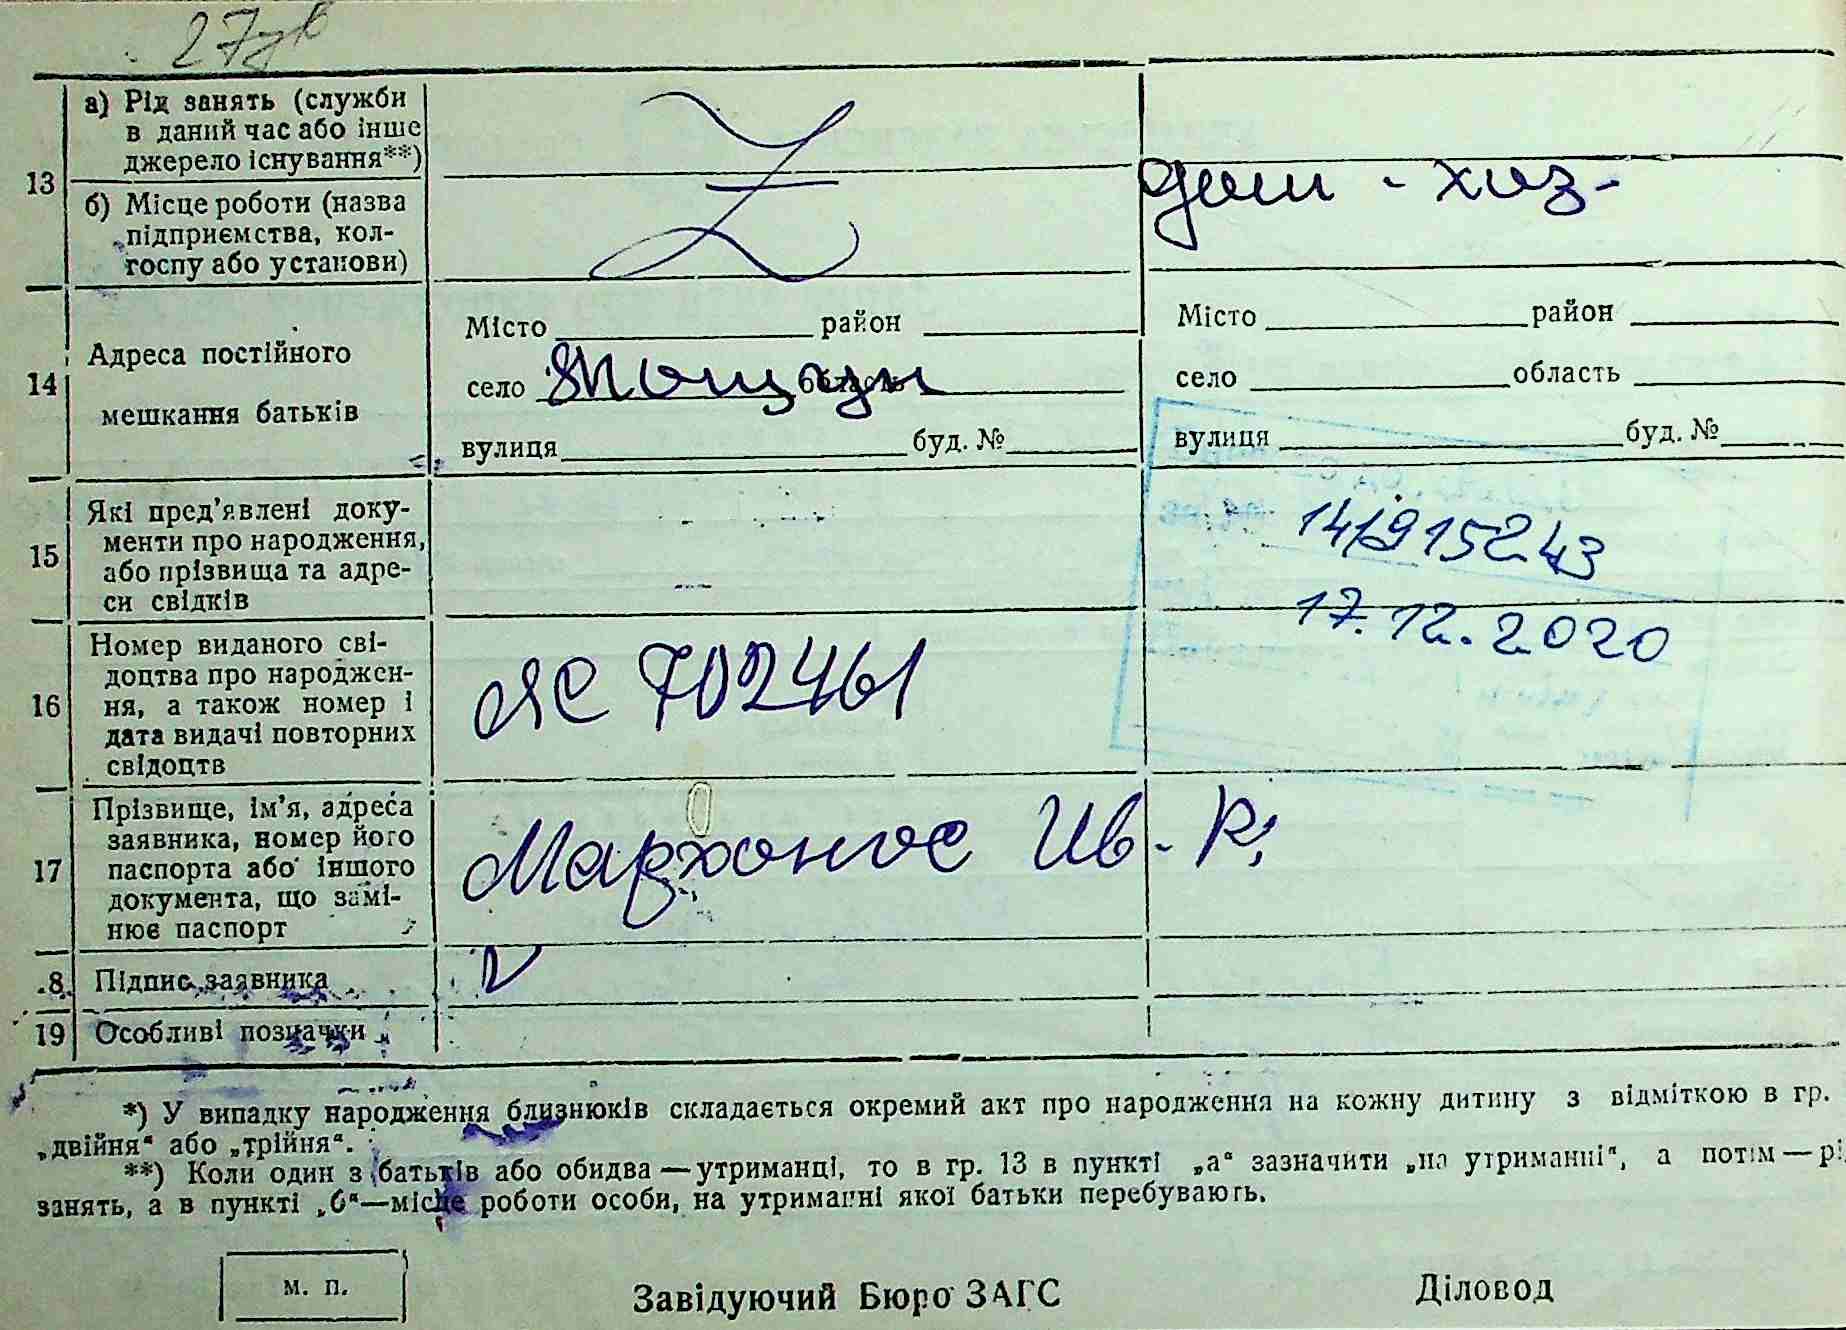 27зв
13
а) Рід занять (служби
в даний час або інше
джерело існування**)
б) Місце роботи (назва
підприємства, кол-
госпу або установи)
Z
дом - хоз-
14
Адреса постійного
мешкання батьків
Місто район
село область
вулиця буд. №
Місто район
село область
вулиця буд. №
15
Які пред'явлені доку-
менти про народження,
або прізвища та адре-
си свідків
141915243
17.12.2020
16
Номер виданого сві-
доцтва про народжен-
ня, а також номер і
дата видачі повторних
свідоцтв
ЯС 702461
17
Прізвище, ім'я, адреса
заявника, номер його
паспорта або іншого
документа, що замі-
нює паспорт
Ив. К.
8
Підпис заявника
V
19
Особливі позначки
*) У випадку народження близнюків складається окремий акт про народження на кожну дитину з відміткою в гр.
„двійня“ або „трійня“.
**) Коли один з батьків або обидва — утриманці, то в гр. 13 в пункті „а“ зазначити „на утриманні“, а потім — рі
занять, а в пункті „б“—місце роботи особи, на утриманні якої батьки перебувають.
м. п.
Завідуючий Бюро ЗАГС
Діловод